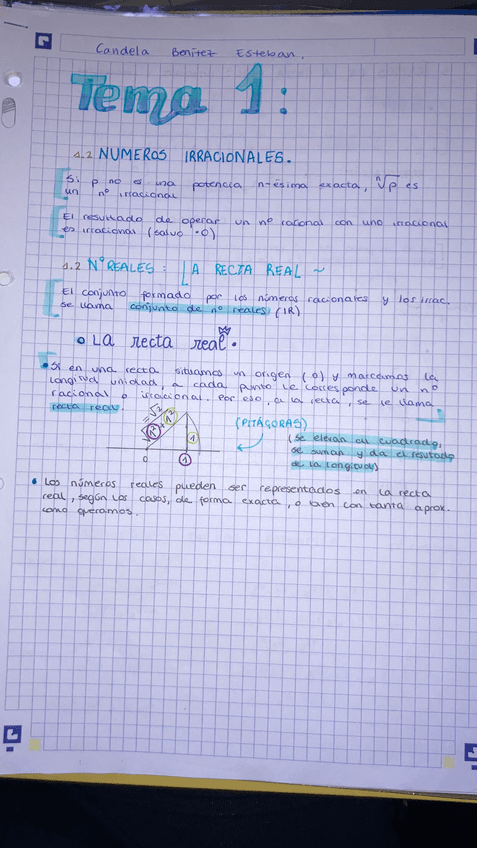 Candela Benítez Esteban.
Tema 1:
1.2 NUMEROS IRRACIONALES.
Si p no es una potencia n-ésima exacta, ⁿ√p es
un nº irracional
El resultado de operar un nº racional con uno irracional
es irracional (salvo ·0)
1.2 Nº REALES: LA RECTA REAL ~
El conjunto formado por los números racionales y los irrac.
se llama conjunto de nº reales (IR)
• La recta real.
• Si en una recta situamos un origen (0) y marcamos la
longitud unidad, a cada punto le corresponde un nº
racional o irracional. Por eso, a la recta, se le llama
recta real.
√1²+1² = √2
1
0
1
(PITÁGORAS)
(se elevan al cuadrado,
se suman y da el resultado
de la longitud)
• Los números reales pueden ser representados en la recta
real, según los casos, de forma exacta, o bien con tanta aprox.
como queramos.